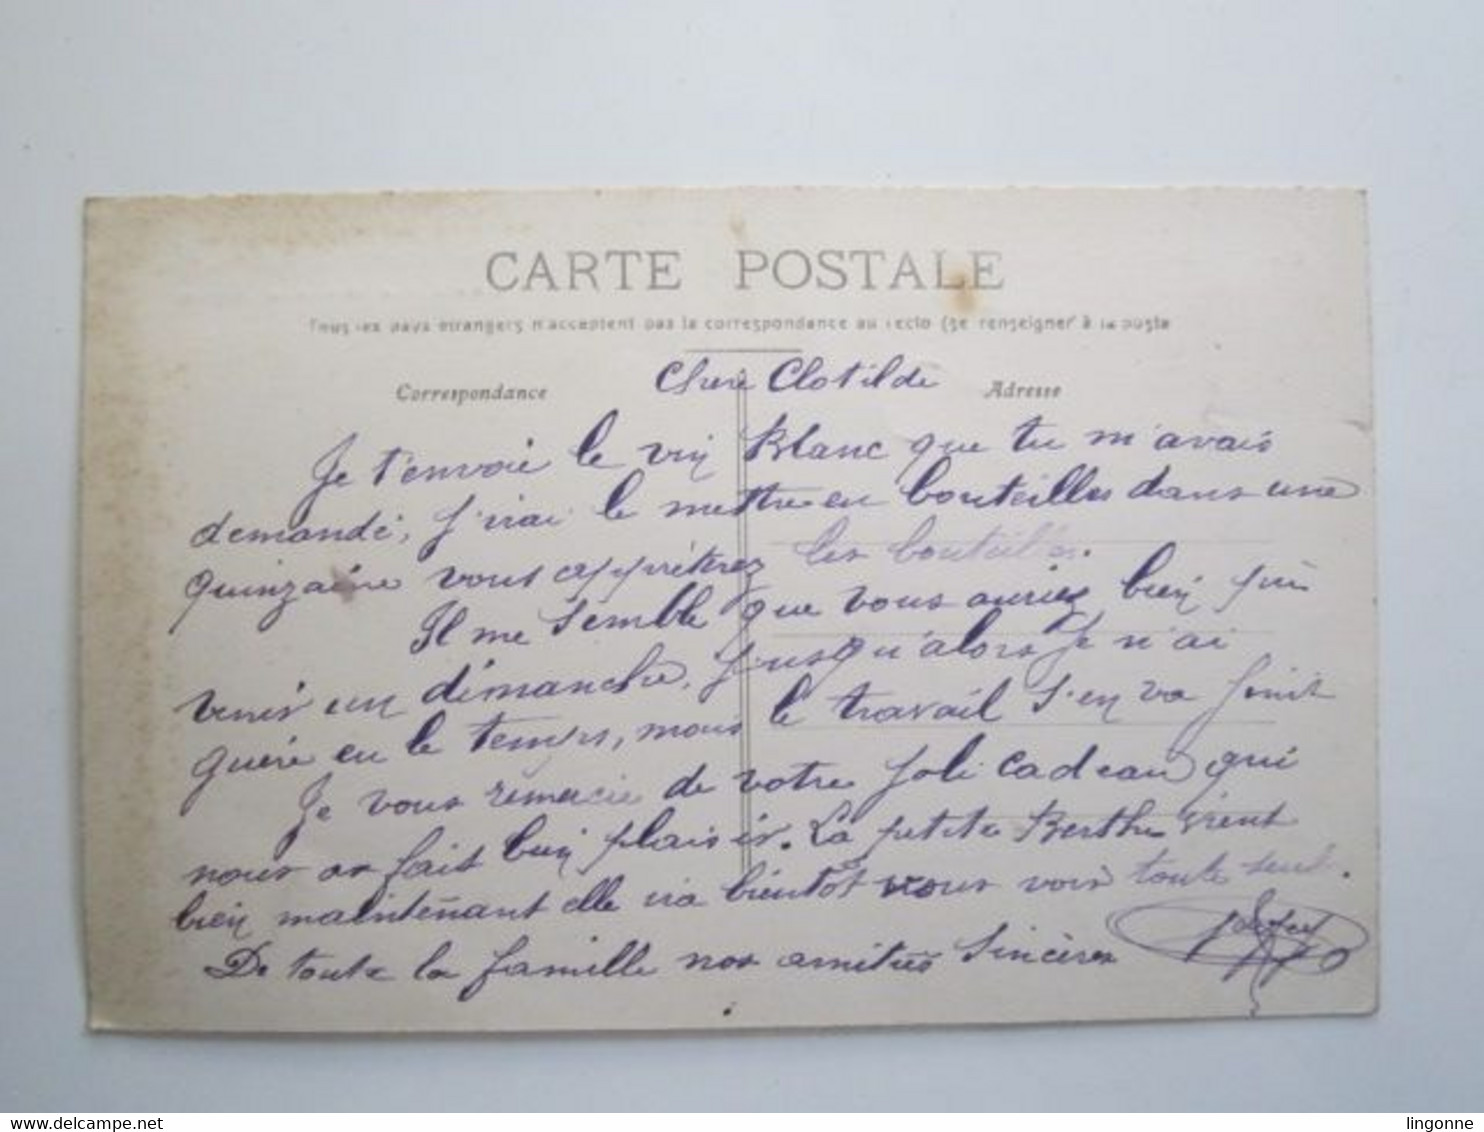 CARTE POSTALE
Tous les pays étrangers n'acceptent pas la correspondance au recto (se renseigner à la poste
Correspondance
Adresse
Chère Clotilde
Je t'envoie le vin Blanc que tu m'avais
demandé, j'irai le mettre en bouteilles dans une
quinzaine vous apprêterez les bouteilles.
Il me semble que vous auriez bien pu
venir un dimanche, jusqu'alors je n'ai
guère eu le temps, mais le travail s'en va finit
Je vous remercie de votre joli cadeau qui
nous as fait bien plaisir. La petite Berthe vient
bien maintenant elle ira bientôt vous voir toute seule.
De toute la famille nos amitiés sincères
lingonne
delcampe.net